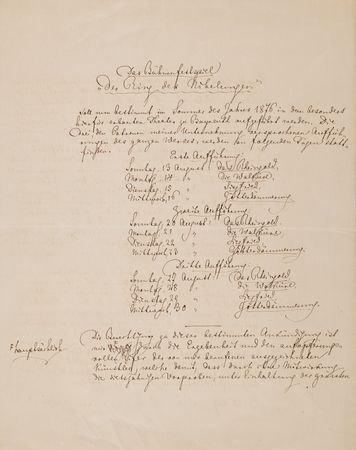 Das Bühnenfestspiel
„Der Ring des Nibelungen"
soll nun bestimmt im Sommer des Jahres 1876 in dem besonders
hierfür erbauten Theater zu Bayreuth aufgeführt werden. Die
drei den Patronen meiner Unternehmung versprochenen Aufführ-
ungen des ganzen Werkes, werden an folgenden Tagen statt-
finden.
Erste Aufführung.
Sonntag 13 August: Das Rheingold.
Montag, 14 " Die Walküre.
Dienstag 15 " Siegfried.
Mittwoch, 16 " Götterdämmerung.
Zweite Aufführung.
Sonntag, 20 August: Das Rheingold.
Montag, 21 " die Walküre.
Dienstag, 22 " Siegfried.
Mittwoch 23 " Götterdämmerung.
Dritte Aufführung.
Sonntag 27 August: Das Rheingold.
Montag, 28 " die Walküre.
Dienstag 29 " Siegfried
Mittwoch 30 " Götterdämmerung.
Die Berechtigung zu dieser bestimmten Ankündigung ist
mir durch die Ergebenheit und den aufopferungs-
F hauptsächlich
vollen Eifer der von mir berufenen ausgezeichneten
Künstler, welche
die diesjährigen Vorproben, unter Einhaltung der